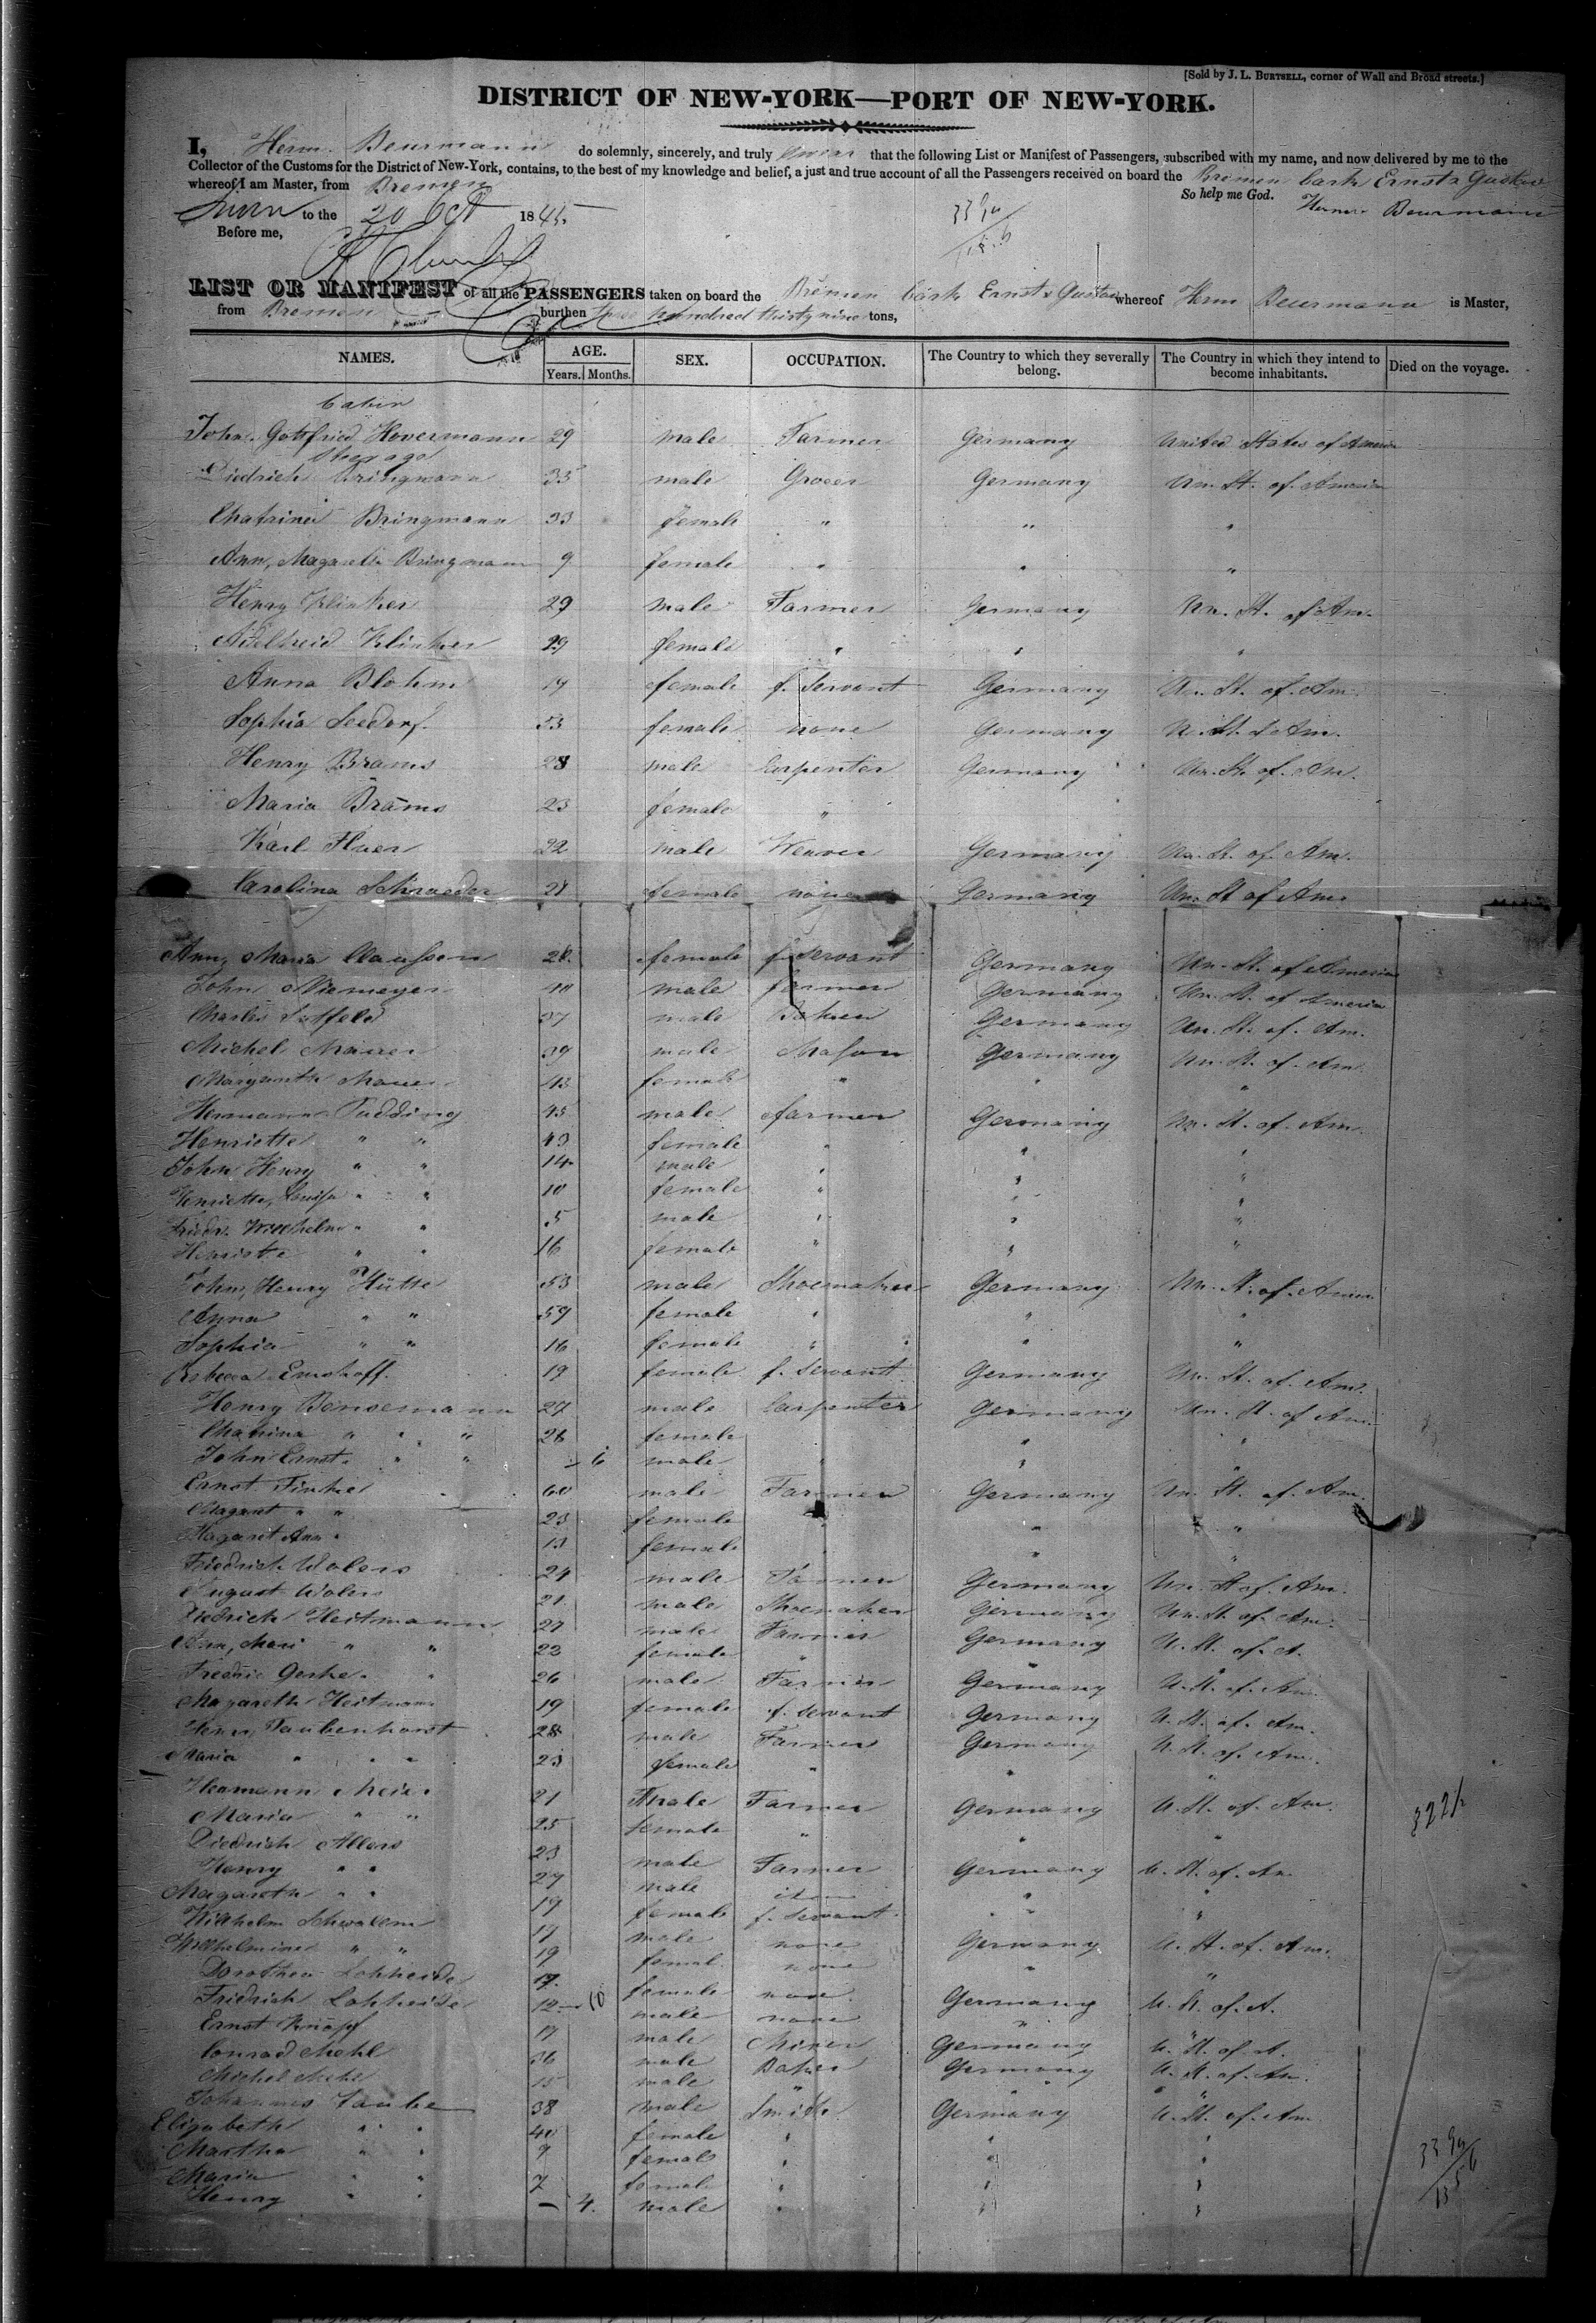 [Sold by J. L. BURTSELL, corner of Wall and Broad streets.]
DISTRICT OF NEW-YORK—PORT OF NEW-YORK.
I, Herm. Beurmann do solemnly, sincerely, and truly swear that the following List or Manifest of Passengers, subscribed with my name, and now delivered by me to the
Collector of the Customs for the District of New-York, contains, to the best of my knowledge and belief, a just and true account of all the Passengers received on board the Bremen bark Ernst & Gustav
whereof I am Master, from Bremen So help me God.
Sworn to the 20 Oct 1845 Herm. Beurmann
Before me,
LIST OR MANIFEST of all the PASSENGERS taken on board the Bremen bark Ernst & Gustav whereof Herm Beurmann is Master,
from Bremen burthen three hundred thirty nine tons,
NAMES. AGE. SEX. OCCUPATION. The Country to which they severally belong. The Country in which they intend to become inhabitants. Died on the voyage.
Years. Months.
Cabin
John. Gottfried Hovermann 29 male Farmer Germany United States of America
Steerage
Diedrich Bringmann 35 male Grocer Germany Un. St. of America
Chatrina Bringmann 33 female " " "
Ann, Magareth Bringmann 9 female " " "
Henry Klinker 29 male Farmer Germany Un. St. of Am.
Adelheid Klinker 29 female " " "
Anna Blohm 19 female f. Servant Germany Un. St. of Am.
Sophia Seedorf 53 female none Germany Un. St. of Am.
Henry Brams 28 male Carpenter Germany Un. St. of Am.
Maria Brams 23 female "
Karl Fluer 22 male Weaver Germany Un. St. of Am.
Carolina Schraeder 21 female none Germany Un. St of Am.
Ann, Maria Claussen 28 female f. Servant Germany Un. St. of America
John Niemeyer 40 male farmer Germany Un. St. of America
Charles 37 male Baker Germany Un. St. of Am.
Michel Mauer 39 male Mason Germany Un. St. of Am.
Margareth Mauer 43 female " " "
Hermann Pudding 45 male farmer Germany Un. St. of Am.
Henriette " " 43 female " " "
John Henry " " 14 male " " "
Henriette, Louisa " " 10 female " " "
Friedr. Wilhelm " " 5 male " " "
Henriette " " 16 female " " "
John, Henry Hütte 53 male Shoemaker Germany Un. St. of Am.
Anna " " 59 female " " "
Sophia " " 16 female " " "
Rebecca Emshoff. 19 female f. Servant Germany Un. St. of Am.
Henry Bensemann 27 male Carpenter Germany Un. St. of Am.
Chatrina " " " 26 female " "
John Ernst " " - 6 male " " "
Ernst Finke 60 male Farmer Germany Un. St. of Am.
Magaret " " 23 female " "
Magaret Ann " 13 female " "
Friedrich Wolers 24 male Farmer Germany Un. St. of Am.
August Wolers 21 male Shoemaker Germany Un. St. of Am.
Diedrich Heitmann 27 male Farmer Germany U. St. of A.
Ann, Mari " " 22 female " " "
Fredric Gerke 26 male Farmer Germany U. St. of Am.
Magareth Heitmann 19 female f. servant Germany U. St. of Am.
Henry Taubenhorst 28 male Farmer Germany U. St. of Am.
Maria " " " 23 female " " "
Hermann Meier 21 Male Farmer Germany U. St. of Am.
Maria " " 25 female " " "
Diedrich Allers 23 male Farmer Germany U. St. of Am.
Henry " " 27 male item " "
Magareth " " 19 female f. servant " "
Wilhelm 17 male none Germany U. St. of Am.
Wilhelmine " " 19 female none " "
Dorothea Lohheide 17 female none Germany U. St. of A.
Friedrich Lohheide 12 - 10 male none " "
Ernst Knopf 17 male Miner Germany U. St. of A.
Conrad Mehl 36 male Baker Germany U. St. of Am.
Michel Mehl 15 male " " " "
Johannes Taube 38 male Smith Germany U. St. of Am
Elizabeth " " 40 female " " "
Martha " " 9 female " " "
Maria " " 7 female " " "
Henry " " - 4. male " " "